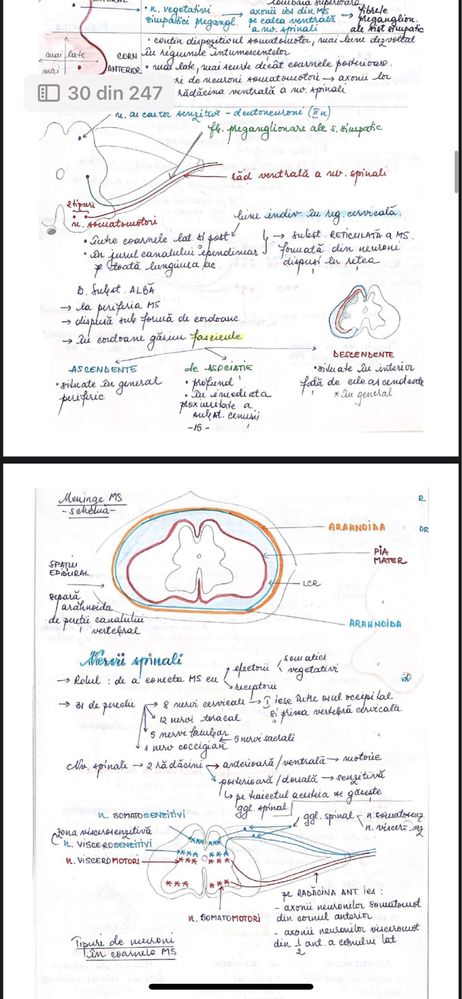 • n. vegetativi
simpatici pregangl.
axonii ies din MS
pe calea ventrală
a nv. spinali
fibrele
preganglion.
ale sist simpatic
• conțin dispozitivul somatomotor, mai bine dezvoltat
în regiunile intumescențelor
• mai late, mai scurte decât coarnele posterioare.
mai late
mai
CORN
ANTERIOR
ri de neuroni somatomotori → axonii lor
rădăcina ventrală a nv. spinali
30 din 247
n. ai căilor senzitive - deutoneuroni (II n)
fb. preganglionare ale s. simpatic
răd ventrală a nv. spinali
2 tipuri
n. somatomotori
bine indiv. în reg. cervicală
• între coarnele lat și post
• în jurul canalului ependimar
pe toată lungimea ac.
→ subst. RETICULATĂ a MS
formată din neuroni
dispuși în rețea
B. Subst. ALBĂ
→ la periferia MS
→ dispusă sub formă de cordoane
→ în cordoane găsim fascicule
ASCENDENTE
• situate în general
periferic
de ASOCIAȚIE
• profund
• în imediata
proximitate a
subst. cenușii
DESCENDENTE
• situate în interior
față de cele ascendente
* în general
-15-
Meninge MS
- schemă -
ARAHNOIDA
PIA
MATER
LCR
ARAHNOIDA
SPAȚIU
EPIDURAL
separă
arahnoida
de pereții canalului
vertebral
R.
DR
Nervii spinali
→ Rolul : de a conecta MS cu
efectorii
somatici
vegetativi
receptorii
→ 31 de perechi
→ 8 nervi cervicali → I iese între osul occipital
și prima vertebră cervicală
12 nervi toracal
5 nervi lombar
5 nervi sacrali
1 nerv coccigian
Nv. spinali → 2 rădăcini → anterioară/ventrală → motorie
posterioară/dorsală → senzitivă
↳ pe traiectul acesteia se găsește
ggl spinal
n. SOMATOSENZITIVI
zona viscerosenzitivă
n. VISCEROSENZITIVI
n. VISCEROMOTORI
ggl. spinal
n somatosenz
n. viscerosenz
n. SOMATOMOTORI
pe RĂDĂCINA ANT. ies :
- axonii neuronilor somatomot
din cornul anterior
- axonii neuronilor visceromot
din 1/2 ant. a cornului lat
Tipuri de neuroni
în coarnele MS